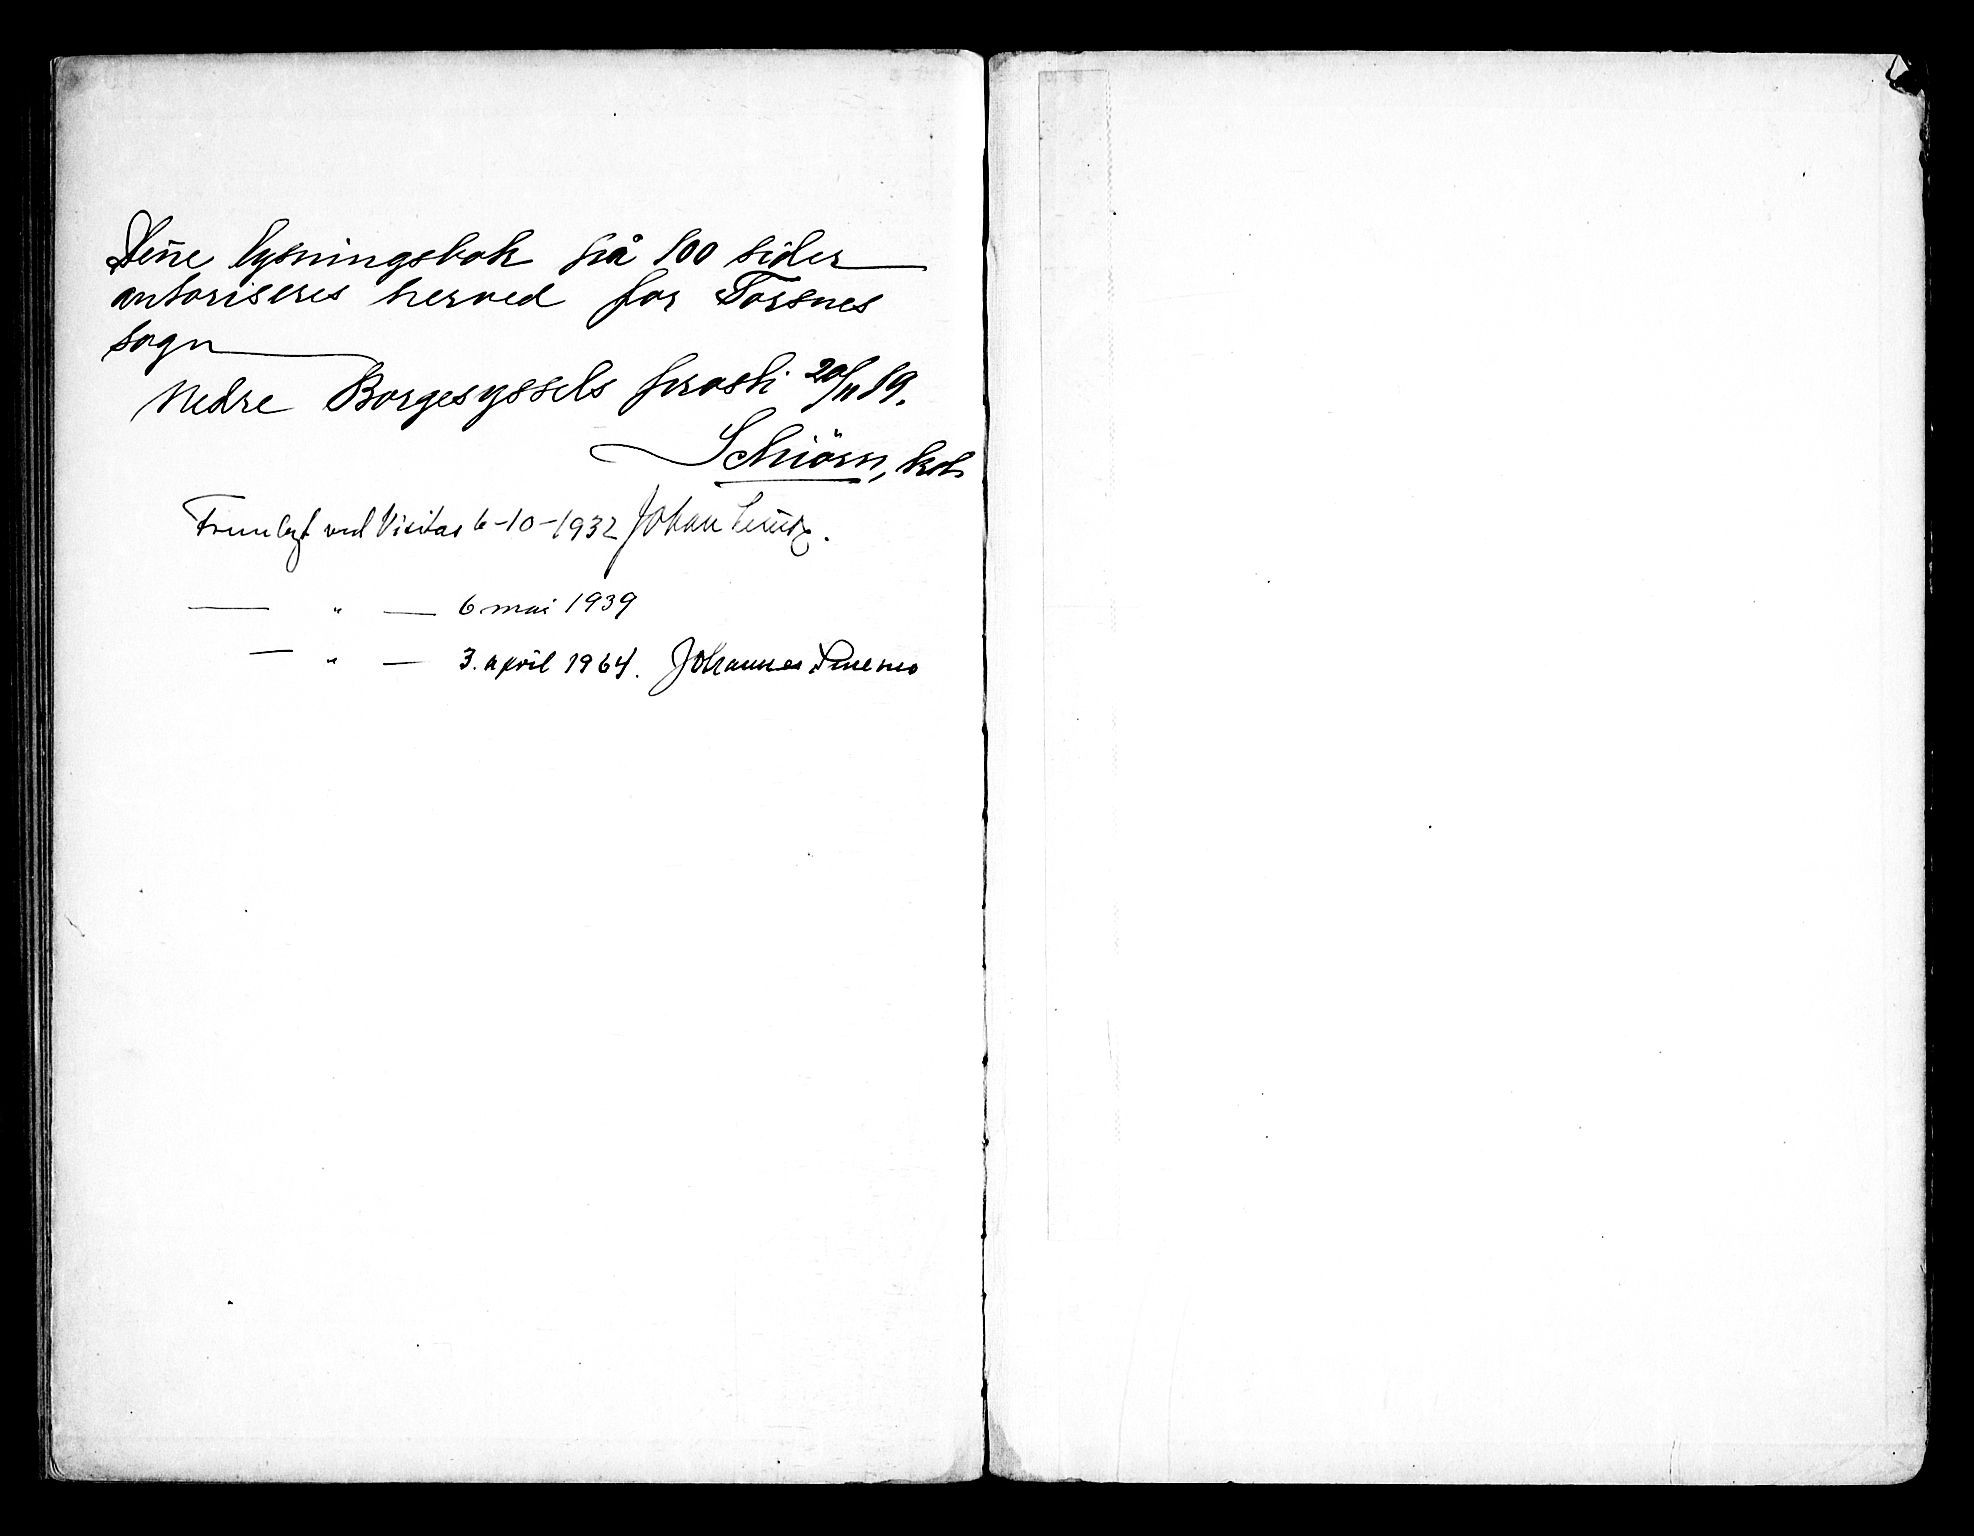 Denne lysningsbok på 100 sider
autoriseres herved for Torsnes
sogn
Nedre Borgesyssels prosti 20/11 19.
Schiørn, kst.
Fremlagt ved Visitas 6-10-1932 Johan Lunde.
— " — 6 mai 1939
— " — 3. april 1964. Johannes Smemo